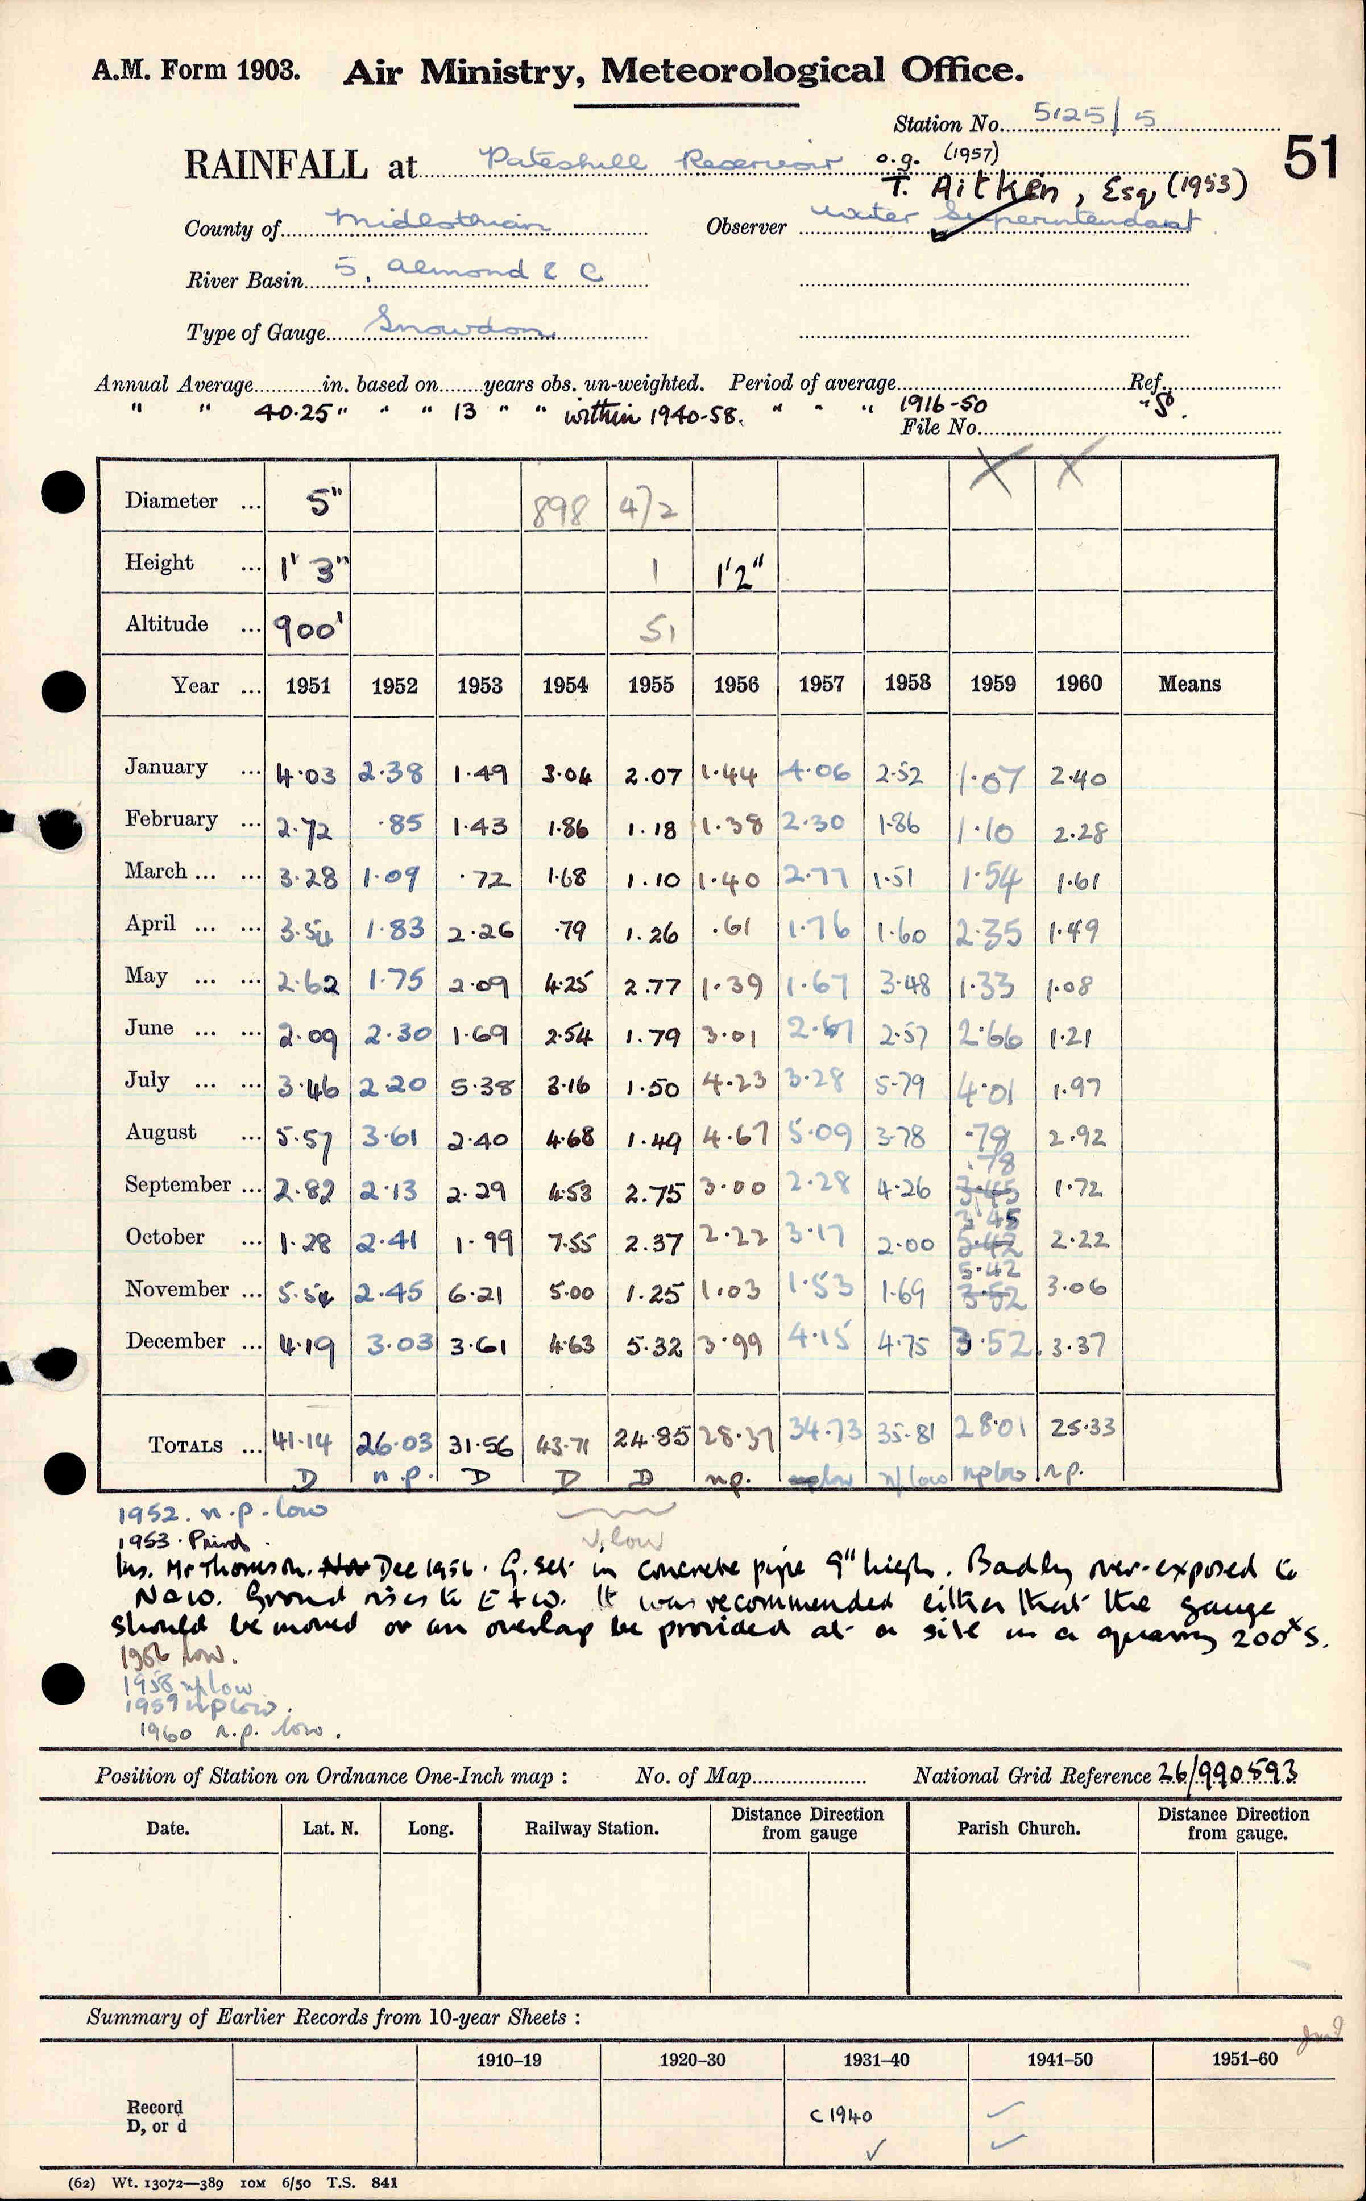 A.M. Form 1903. Air Ministry, Meteorological Office.
Station No. 5125/5
51
RAINFALL at Pateshill Reservoir o.g. (1957)
T. Aitken, Esq (1953)
County of Midlothian Observer Water Superintendant.
River Basin 5. Almond & C
Type of Gauge Snowdon
Annual Average in. based on years obs. un-weighted. Period of average Ref.
" " 40.25" " " 13 " " within 1940-58. " " " 1916-50 "S".
File No.
Diameter ... 5" 898 4/2
Height ... 1' 3" 1 1'2"
Altitude ... 900' 51
Year ... 1951 1952 1953 1954 1955 1956 1957 1958 1959 1960 Means
January ... 4.03 2.38 1.49 3.04 2.07 1.44 4.06 2.52 1.07 2.40
February ... 2.72 .85 1.43 1.86 1.18 1.38 2.30 1.86 1.10 2.28
March ... ... 3.28 1.09 .72 1.68 1.10 1.40 2.77 1.51 1.54 1.61
April ... ... 3.54 1.83 2.26 .79 1.26 .61 1.76 1.60 2.35 1.49
May ... ... 2.62 1.75 2.09 4.25 2.77 1.39 1.67 3.48 1.33 1.08
June ... ... 2.09 2.30 1.69 2.54 1.79 3.01 2.67 2.57 2.66 1.21
July ... ... 3.46 2.20 5.38 3.16 1.50 4.23 3.28 5.79 4.01 1.97
August ... 5.57 3.61 2.40 4.68 1.49 4.67 5.09 3.78 .78 2.92
September ... 2.82 2.13 2.29 4.53 2.75 3.00 2.28 4.26 .78 3.45 1.72
October ... 1.28 2.41 1.99 7.55 2.37 2.22 3.17 2.00 3.45 5.42 2.22
November ... 5.54 2.45 6.21 5.00 1.25 1.03 1.53 1.69 5.42 3.52 3.06
December ... 4.19 3.03 3.61 4.63 5.32 3.99 4.15 4.75 3.52 3.37
TOTALS ... 41.14 26.03 31.56 43.71 24.85 28.37 34.73 35.81 28.01 25.33
D n.p. D D D n.p. low n/low nplow n.p.
1952. n.p. low
1953. Paird v. low
Ins. Mr Thomson. Dec 1956. G. set in concrete pipe 9" high. Badly over-exposed to
N & W. Ground rises to E + W. It was recommended either that the gauge
should be moved or an overlap be provided at a site in a quarry 200x S.
1956 low.
1958 n/low
1959 nplow.
1960 n.p. low.
Position of Station on Ordnance One-Inch map : No. of Map National Grid Reference 26/990593
Date. Lat. N. Long. Railway Station. Distance Direction from gauge Parish Church. Distance Direction from gauge.
Summary of Earlier Records from 10-year Sheets :
1910–19 1920–30 1931–40 1941–50 1951–60
Record D, or d C 1940 ✓ ✓ ✓
(62) Wt. 13072—389 10M 6/50 T.S. 841